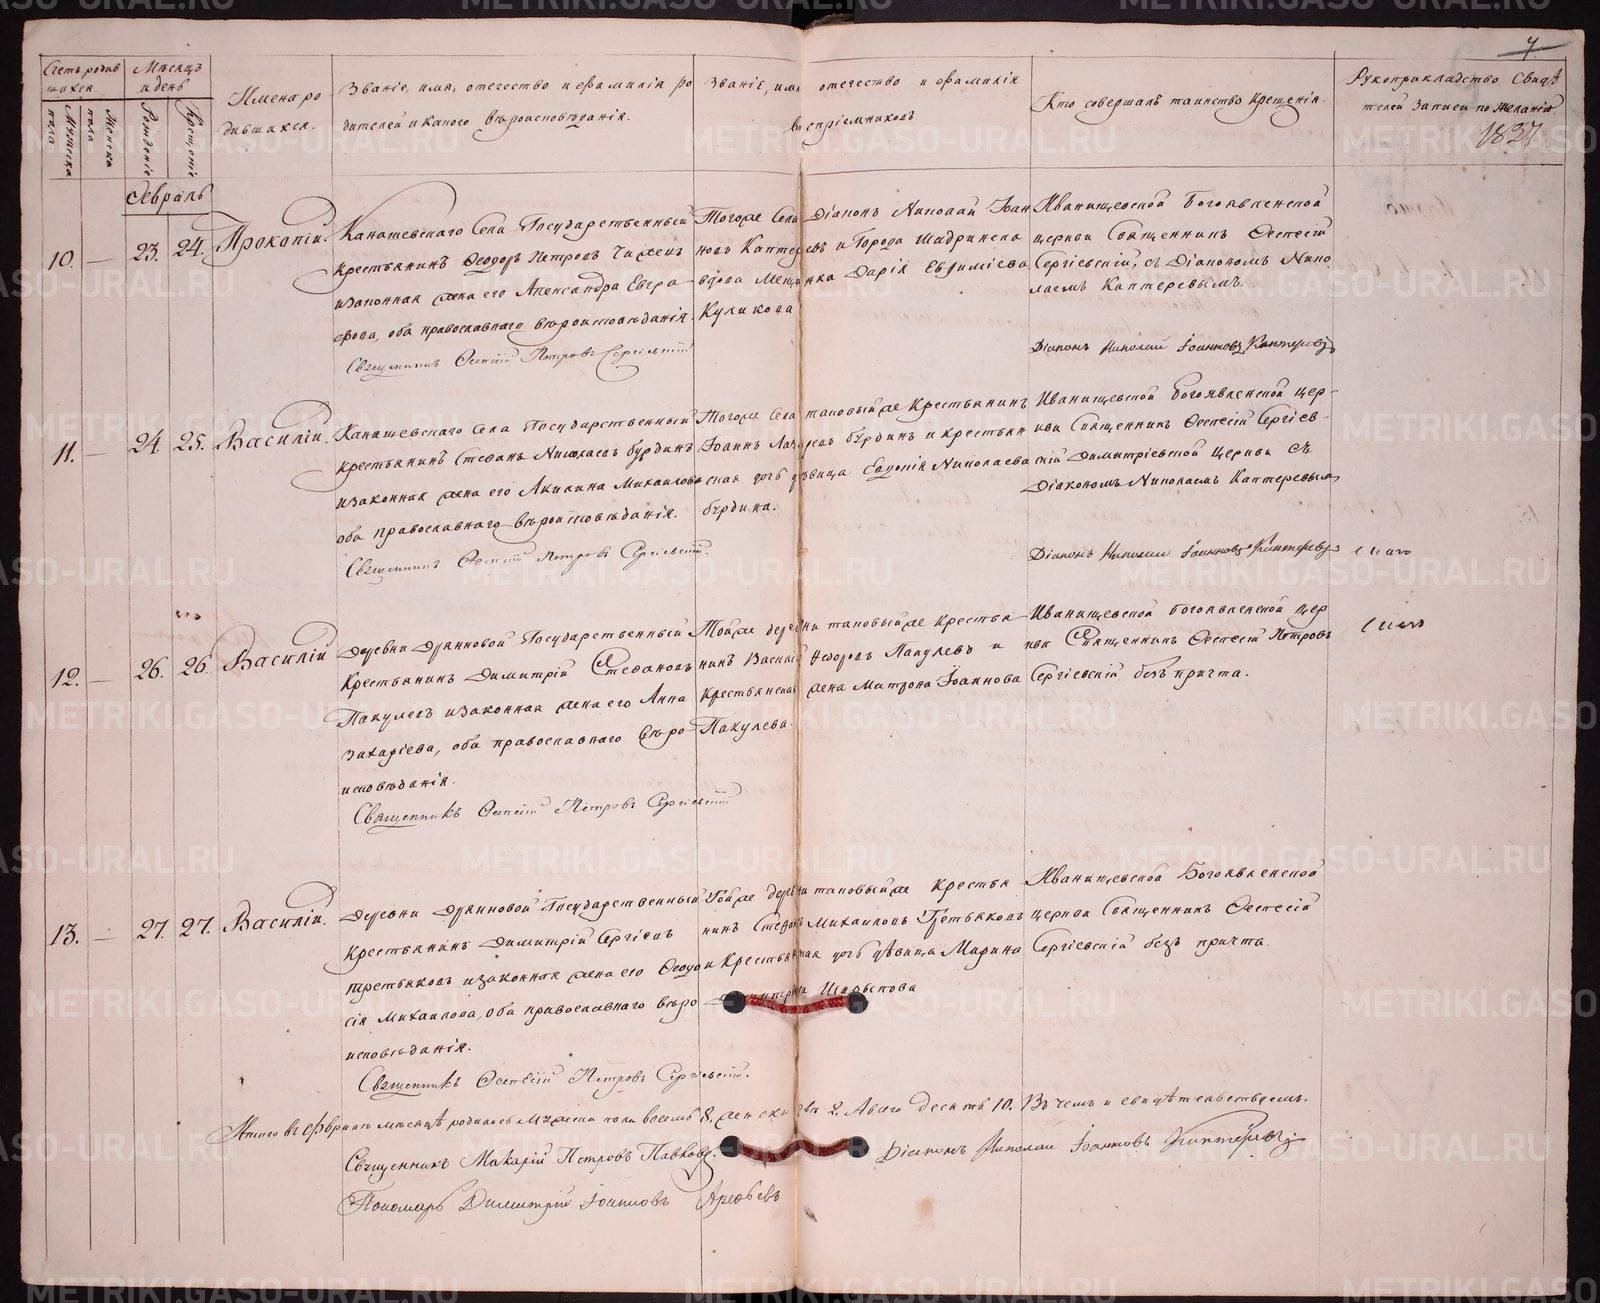 4
Счетъ родив
шихся.
Мужеска
пола
Женска
пола
Мѣсяцъ
и день
Рожденіе
Крещеніе
Имена ро
дившихся.
Званіе, имя, отечество и фамилія ро
дителей и какого вѣроисповѣданія.
Званіе, имя отечество и фамилія
воспріемниковъ
Кто совершалъ таинство крещенія.
Рукоприкладство свидѣ
телей записи по желанію
1837
Февраль
10. — 23. 24. Прокопій.
Канашевскаго Села Государственный
крестьянинъ Ѳеодоръ Петровъ
изаконная жена его Александра Евгра
фова, оба православнаго вѣроисповѣданія.
Священникъ Петровъ Сергіевскій
Тогоже Села Діаконъ Николай Іоан
новъ Каптеревъ и Города Шадринска
вдова Мещанка Дарія Евѳиміева
Куликова
Иванищевской Богоявленской
церкви Священникъ
Сергіевскій, съ Діакономъ Нико
лаемъ Каптеревымъ.
Діаконъ Николай Іоанновъ Каптеревъ
11. — 24. 25. Василій.
Канашевскаго Села Государственный
крестьянинъ Стефанъ Николаевъ бурдинъ
изаконная жена его Акилина Михаилова
оба православнаго вѣроисповѣданія.
Священникъ Петровъ Сергіевскій.
Тогоже Села таковыйже Крестьянинъ
Іоаннъ бурдинъ и крестьян
ская дочь дѣвица Евдокія Николаева
бурдина.
Иванищевской Богоявленской цер-
кви Священникъ Сергіев-
скій Димитріевской Церкви съ
Діакономъ Николаемъ Каптеревымъ
Діаконъ Николай Іоанновъ Каптеревъ
12. — 26. 26. Василій
Деревни Дрянновой Государственный
Крестьянинъ Димитрій Стефановъ
Пакулевъ изаконная жена его Анна
Захаріева, оба православнаго вѣро-
исповѣданія.
Священникъ Петровъ Сергіевскій
Тойже деревни таковыйже крестья
нинъ Василій Ѳедоровъ Пакулевъ и
Крестьянская жена Матрона Іоаннова
Пакулева.
Иванищевской Богоявленской цер
кви Священникъ Петровъ
Сергіевскій безъ причта.
13. — 27. 27. Василій.
Деревни Дрянновой Государственный
Крестьянинъ Димитрій Сергіевъ
третьяковъ изаконная жена его Ѳеодо
сія Михаилова, оба православнаго вѣро
исповѣданія.
Священникъ Петровъ Сергіевскій.
Тойже деревни таковыйже крестья
нинъ Стефанъ Михаиловъ Третьяковъ
и Крестьянская дочь дѣвица Марина
Шарыпова
Иванищевской Богоявленской
церкви Священникъ
Сергіевскій безъ причта.
Итого въ февралѣ мѣсяцѣ родилось мужеска пола восемь 8, женска два 2. Авсего десять 10. Въ чемъ и свидѣтельствуемъ.
Священникъ Макарій Петровъ
Діаконъ Николай Іоанновъ Каптеревъ
Пономарь Димитрій Арефьевъ
METRIKI.GASO-URAL.RU